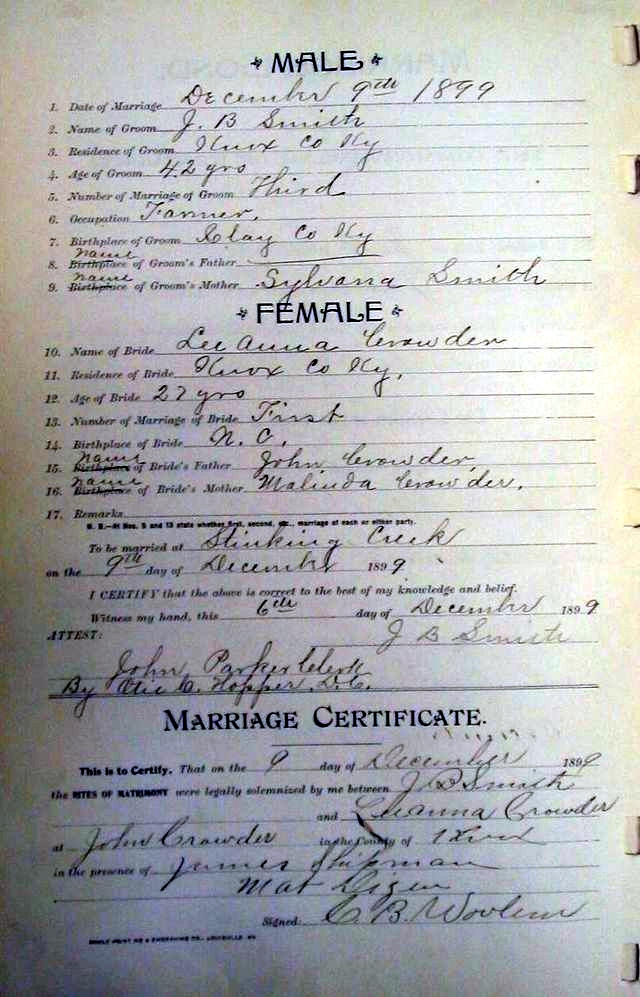 MALE
1. Date of Marriage December 9th 1899
2. Name of Groom J. B Smith
3. Residence of Groom Knox Co Ky
4. Age of Groom 42 yrs
5. Number of Marriage of Groom Third
6. Occupation Farmer.
7. Birthplace of Groom Clay Co Ky
name
8. Birthplace of Groom's Father
name
9. Birthplace of Groom's Mother Sylvana Smith
FEMALE
10. Name of Bride Lee Anna Crowder
11. Residence of Bride Knox Co Ky,
12. Age of Bride 27 yrs
13. Number of Marriage of Bride First
14. Birthplace of Bride N. C.
name
15. Birthplace of Bride's Father John Crowder,
name
16. Birthplace of Bride's Mother Malinda Crowder.
17. Remarks
N. B.—At Nos. 5 and 13 state whether first, second, etc., marriage of each or either party.
To be married at Stinking Creek
on the 9th day of December 1899
I CERTIFY that the above is correct to the best of my knowledge and belief.
Witness my hand, this 6th day of December 1899
ATTEST: J B Smith
John Parker Clerk
By C. Hopper D. C.
MARRIAGE CERTIFICATE.
This is to Certify, That on the 9 day of December 1899
the RITES OF MATRIMONY were legally solemnized by me between J B Smith
and Leeanna Crowder
at John Crowder in the County of Knox
in the presence of James Shipman
Mat
Signed, C. B.